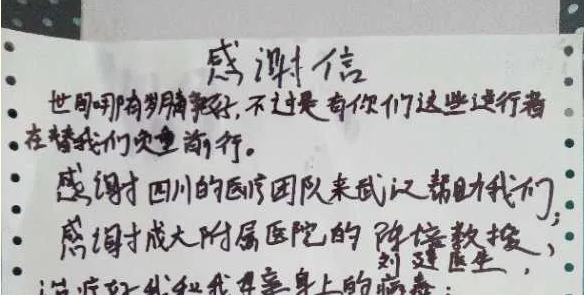 感谢信
世间哪有岁月静好,不过是有你们这些逆行者
在替我们负重前行。
感谢四川的医疗团队来武汉帮助我们;
感谢成大附属医院的陈培教授,
刘建医生,
治疗好我和我母亲身上的病毒;